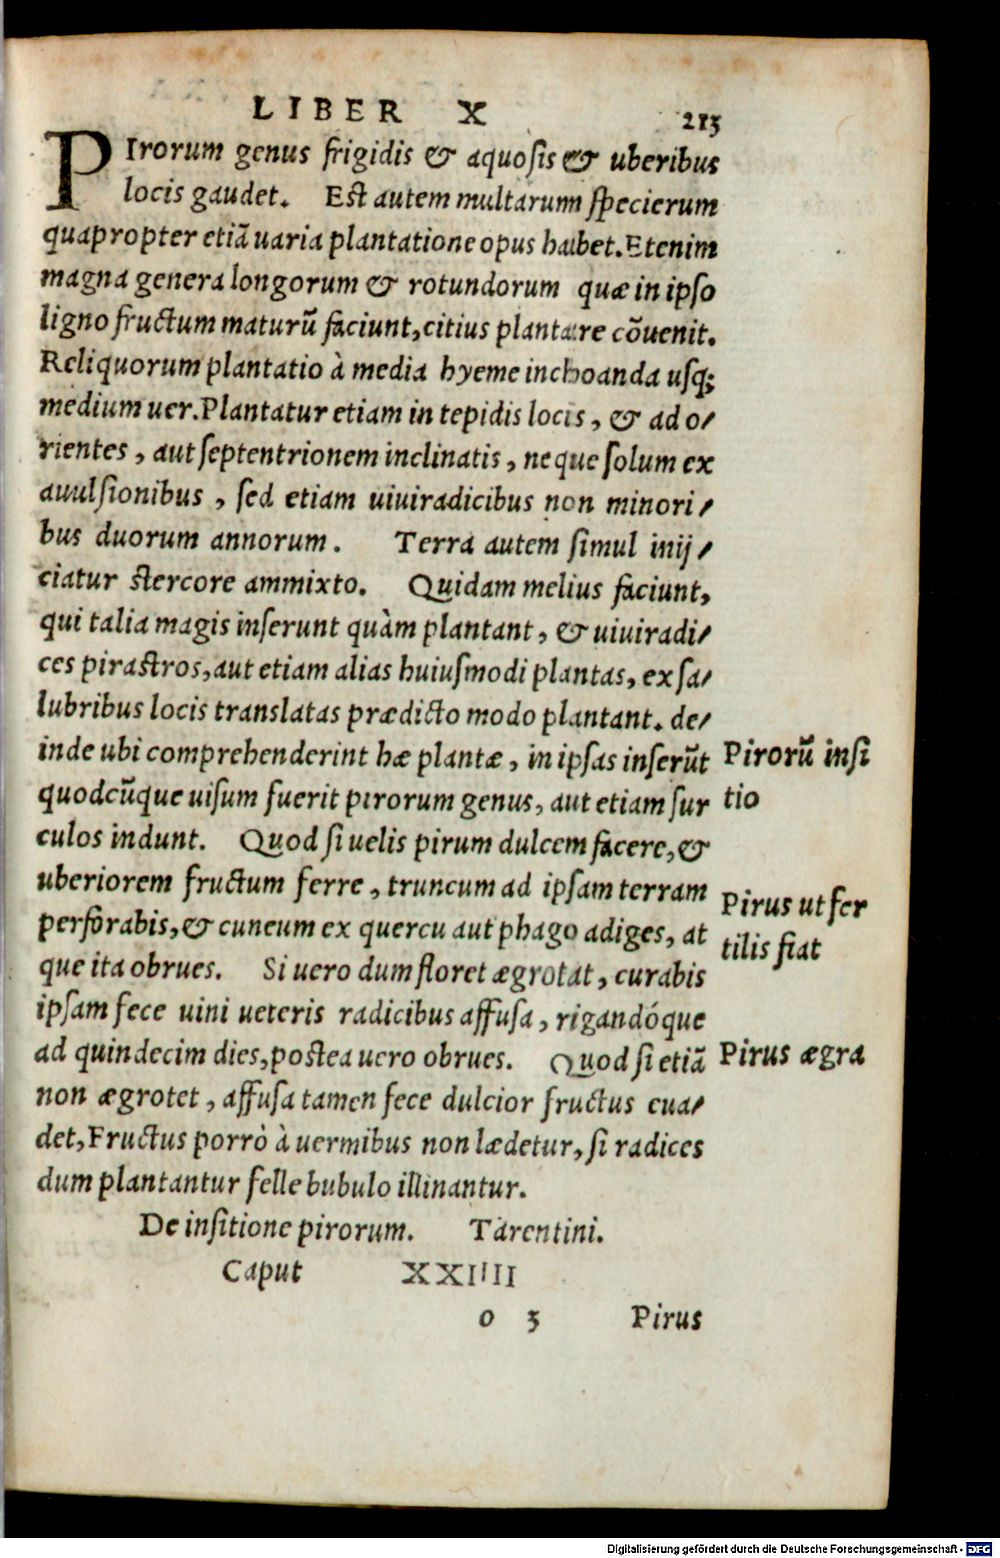 LIBER X 213
PIrorum genus frigidis & aquosis & uberibus
locis gaudet. Est autem multarum specierum
quapropter etiā uaria plantatione opus habet. Etenim
magna genera longorum & rotundorum quæ in ipso
ligno fructum maturū faciunt, citius plantare cōuenit.
Reliquorum plantatio à media hyeme inchoanda usq;
medium uer. Plantatur etiam in tepidis locis, & ad o/
rientes, aut septentrionem inclinatis, neque solum ex
auulsionibus, sed etiam uiuiradicibus non minori/
bus duorum annorum. Terra autem simul inij/
ciatur stercore ammixto. Quidam melius faciunt,
qui talia magis inserunt quàm plantant, & uiuiradi/
ces pirastros, aut etiam alias huiusmodi plantas, ex sa/
lubribus locis translatas prædicto modo plantant. de/
inde ubi comprehenderint hæ plantæ, in ipsas inserūt
Pirorū insi
quodcūque uisum fuerit pirorum genus, aut etiam sur
tio
culos indunt. Quod si uelis pirum dulcem facere, &
uberiorem fructum ferre, truncum ad ipsam terram
Pirus ut fer
perforabis, & cuneum ex quercu aut phago adiges, at
tilis fiat
que ita obrues. Si uero dum floret ægrotat, curabis
ipsam fece uini ueteris radicibus affusa, rigandóque
ad quindecim dies, postea uero obrues. Quod si etiā
Pirus ægra
non ægrotet, affusa tamen fece dulcior fructus eua/
det, Fructus porrò à uermibus non lædetur, si radices
dum plantantur felle bubulo illinantur.
De insitione pirorum. Tarentini.
Caput XXIIII
o 3 Pirus
Digitalisierung gefördert durch die Deutsche Forschungsgemeinschaft - DFG